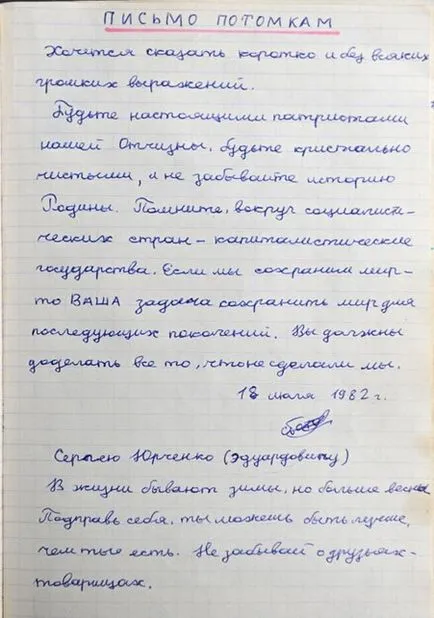 ПИСЬМО ПОТОМКАМ
Хочется сказать коротко и без всяких
громких выражений.
Будьте настоящими патриотами
нашей Отчизны. Будьте кристально
чистыми, и не забывайте историю
Родины. Помните, вокруг социалисти-
ческих стран – капиталистические
государства. Если мы сохраним мир –
то ВАША задача сохранить мир для
последующих поколений. Вы должны
доделать все то, что не сделали мы.
18 июля 1982 г.
Сергею Юрченко (Эдуардовичу)
В жизни бывают зимы, но больше весны
Подправь себя, ты можешь быть лучше,
чем ты есть. Не забывай о друзьях-
товарищах.